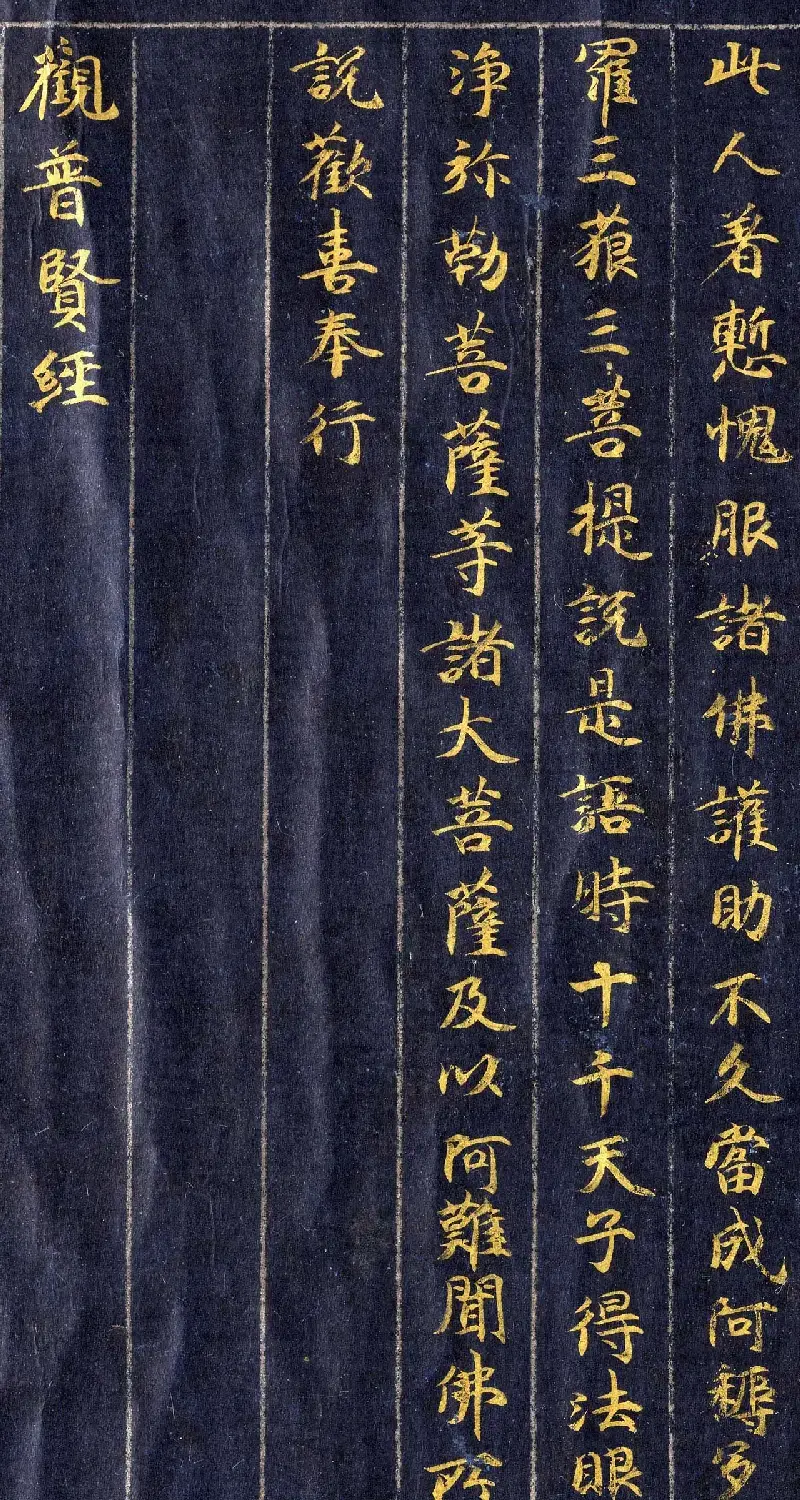 此人著慙愧服諸佛護助不久當成阿耨多
羅三藐三菩提說是語時十千天子得法眼
淨弥勒菩薩等諸大菩薩及以阿難聞佛所
說歡喜奉行
觀普賢經